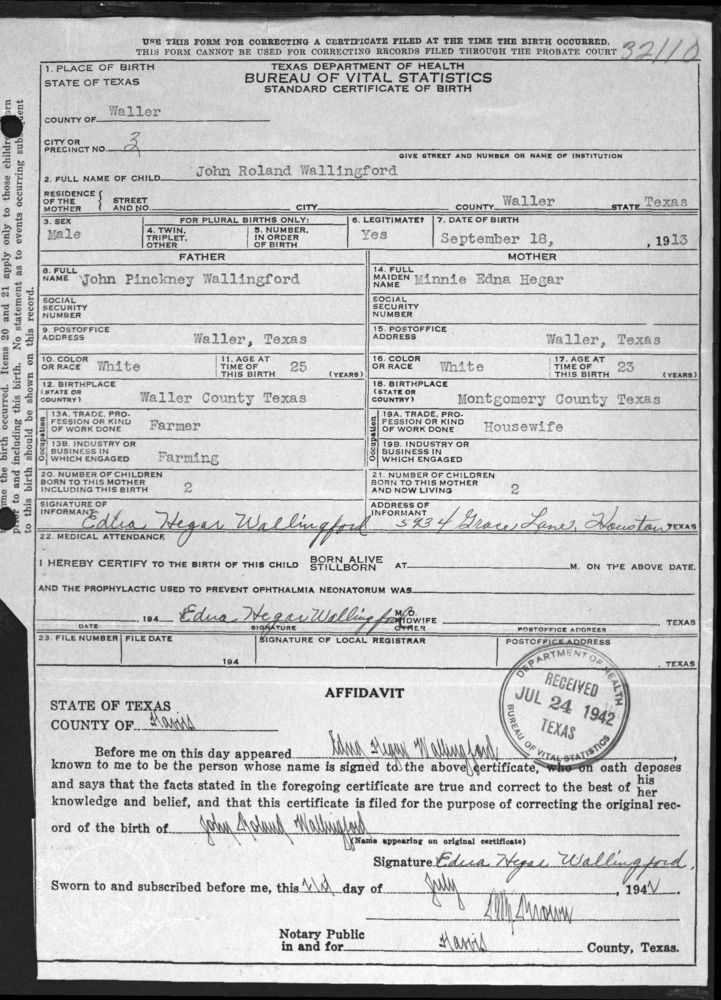 USE THIS FORM FOR CORRECTING A CERTIFICATE FILED AT THE TIME THE BIRTH OCCURRED.
THIS FORM CANNOT BE USED FOR CORRECTING RECORDS FILED THROUGH THE PROBATE COURT
32110
1. PLACE OF BIRTH
STATE OF TEXAS
TEXAS DEPARTMENT OF HEALTH
BUREAU OF VITAL STATISTICS
STANDARD CERTIFICATE OF BIRTH
COUNTY OF Waller
CITY OR PRECINCT NO. 3
GIVE STREET AND NUMBER OR NAME OF INSTITUTION
2. FULL NAME OF CHILD John Roland Wallingford
RESIDENCE OF THE MOTHER { STREET AND NO. CITY COUNTY Waller STATE Texas
3. SEX Male
FOR PLURAL BIRTHS ONLY:
4. TWIN, TRIPLET, OTHER
5. NUMBER, IN ORDER OF BIRTH
6. LEGITIMATE? Yes
7. DATE OF BIRTH September 18, , 1913
FATHER
MOTHER
8. FULL NAME John Pinckney Wallingford
14. FULL MAIDEN NAME Minnie Edna Hegar
SOCIAL SECURITY NUMBER
SOCIAL SECURITY NUMBER
9. POSTOFFICE ADDRESS Waller, Texas
15. POSTOFFICE ADDRESS Waller, Texas
10. COLOR OR RACE White
11. AGE AT TIME OF THIS BIRTH 25 (YEARS)
16. COLOR OR RACE White
17. AGE AT TIME OF THIS BIRTH 23 (YEARS)
12. BIRTHPLACE (STATE OR COUNTRY) Waller County Texas
18. BIRTHPLACE (STATE OR COUNTRY) Montgomery County Texas
Occupation
13A. TRADE, PROFESSION OR KIND OF WORK DONE Farmer
Occupation
19A. TRADE, PROFESSION OR KIND OF WORK DONE Housewife
13B. INDUSTRY OR BUSINESS IN WHICH ENGAGED Farming
19B. INDUSTRY OR BUSINESS IN WHICH ENGAGED
20. NUMBER OF CHILDREN BORN TO THIS MOTHER INCLUDING THIS BIRTH 2
21. NUMBER OF CHILDREN BORN TO THIS MOTHER AND NOW LIVING 2
SIGNATURE OF INFORMANT Edna Hegar Wallingford
ADDRESS OF INFORMANT 5934 Grace Lane, Houston TEXAS
22. MEDICAL ATTENDANCE
I HEREBY CERTIFY TO THE BIRTH OF THIS CHILD BORN ALIVE STILLBORN AT M. ON THE ABOVE DATE.
AND THE PROPHYLACTIC USED TO PREVENT OPHTHALMIA NEONATORUM WAS
, 194 Edna Hegar Wallingford M.D. MIDWIFE OTHER , TEXAS
DATE SIGNATURE POSTOFFICE ADDRESS
23. FILE NUMBER FILE DATE SIGNATURE OF LOCAL REGISTRAR POSTOFFICE ADDRESS
194 , TEXAS
DEPARTMENT OF HEALTH
RECEIVED
JUL 24 1942
TEXAS
BUREAU OF VITAL STATISTICS
AFFIDAVIT
STATE OF TEXAS
COUNTY OF Harris
Before me on this day appeared Edna Hegar Wallingford,
known to me to be the person whose name is signed to the above certificate, who on oath deposes
and says that the facts stated in the foregoing certificate are true and correct to the best of his her
knowledge and belief, and that this certificate is filed for the purpose of correcting the original rec-
ord of the birth of John Roland Wallingford
(Name appearing on original certificate)
Signature Edna Hegar Wallingford.
Sworn to and subscribed before me, this day of July , 1942.
Brown
Notary Public in and for Harris County, Texas.
me the birth occurred. Items 20 and 21 apply only to those children born
prior to and including this birth. No statement as to events occurring subsequent
to this birth should be shown on this record.